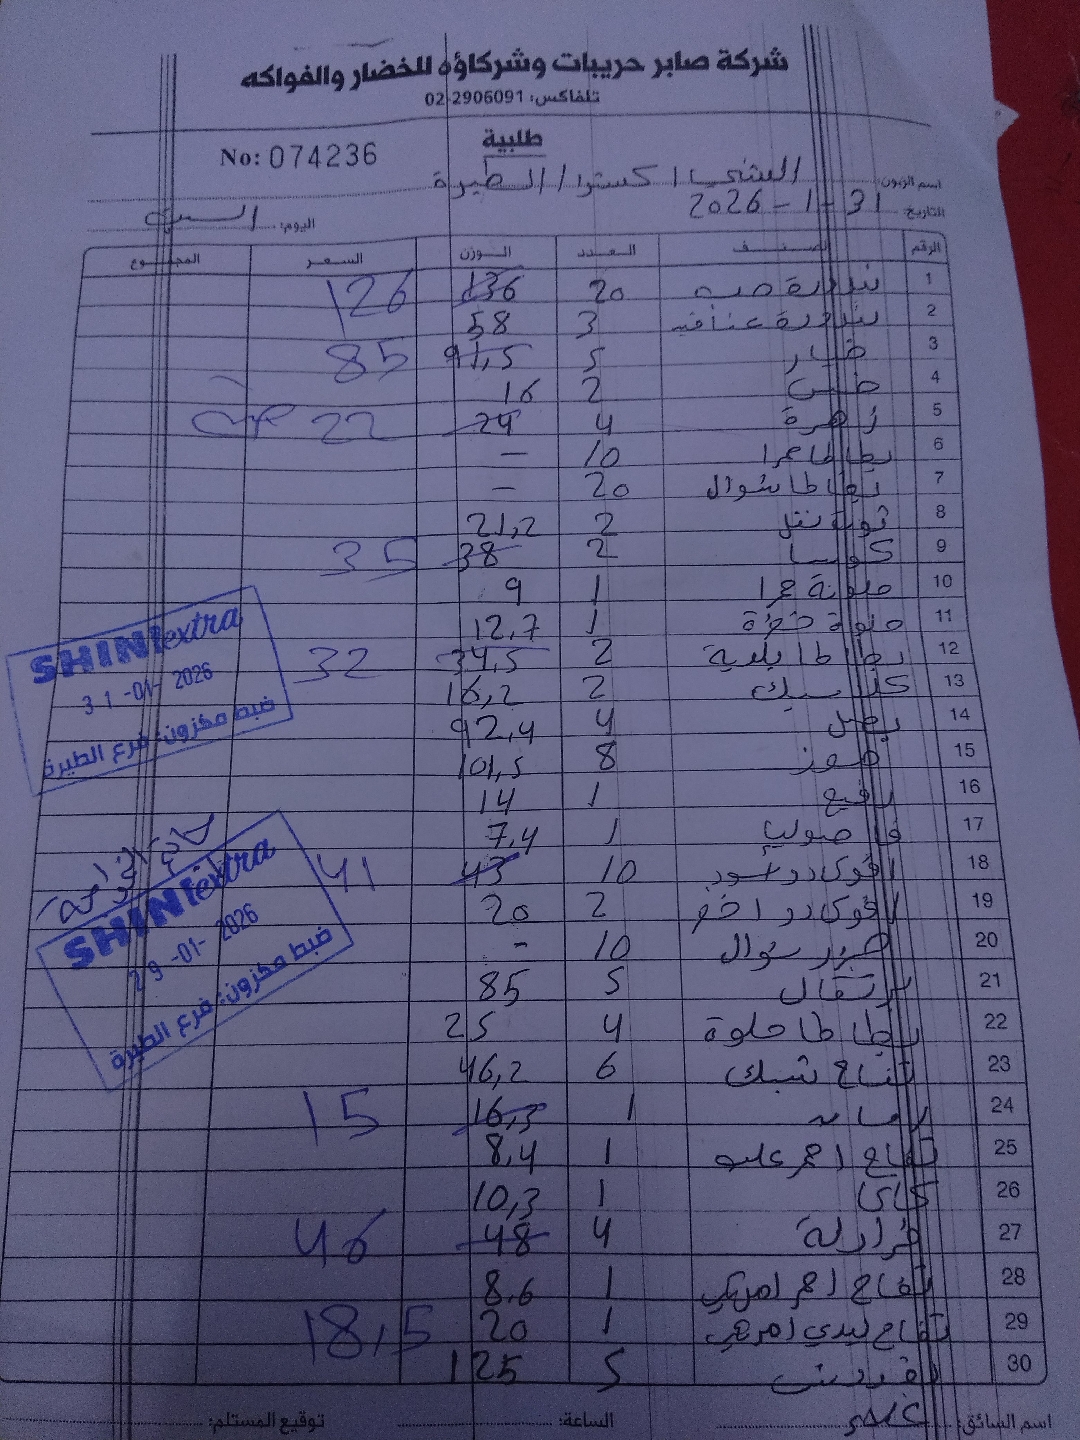 شركة صابر حريبات وشركاؤه للخضار والفواكه
تلفاكس: 02-2906091
طلبية
No: 074236
اسم الزبون: الشني اكسترا / الطيرة
التاريخ: 31-1-2026
اليوم: السبت
الرقم الصنف العدد الوزن السعر المجموع
1 بندورة حب 20 136 126
2 بندورة عناقيد 3 58
3 خيار 5 91,5 85
4 خس 2 16
5 زهرة 4 24 22
6 بطاطا حمرا 10 -
7 بطاطا شوال 20 -
8 2 21,2
9 كوسا 2 38 35
10 ملونة حمرا 1 9
11 ملونة 1 12,7
12 بطاطا بلدية 2 34,5 32
13 2 16,2
14 بصل 4 92,4
15 موز 8 101,5
16 رفيع 1 14
17 فاصوليا 1 7,4
18 افوكادو اسود 10 43 41
19 افوكادو اخضر 2 20
20 شوال 10 -
21 برتقال 5 85
22 بطاطا حلوة 4 25
23 تفاح شبك 6 46,2
24 1 16,3 15
25 تفاح احمر علب 1 8,4
26 كاكا 1 10,3
27 فراولة 4 48 46
28 تفاح احمر امريكي 1 8,6
29 تفاح ليدي امريكي 1 20 18,5
30 5 125
SHINI extra
31-01-2026
ضبط مخزون: فرع الطيرة
SHINI extra
29-01-2026
ضبط مخزون: فرع الطيرة
اسم السائق: الساعة: توقيع المستلم: